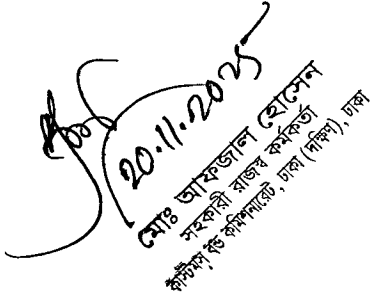 20.11.2025
মোঃ আফজাল হোসেন
সহকারী রাজস্ব কর্মকর্তা
কাস্টমস্ বন্ড কমিশনারেট, ঢাকা (দক্ষিণ), ঢাকা